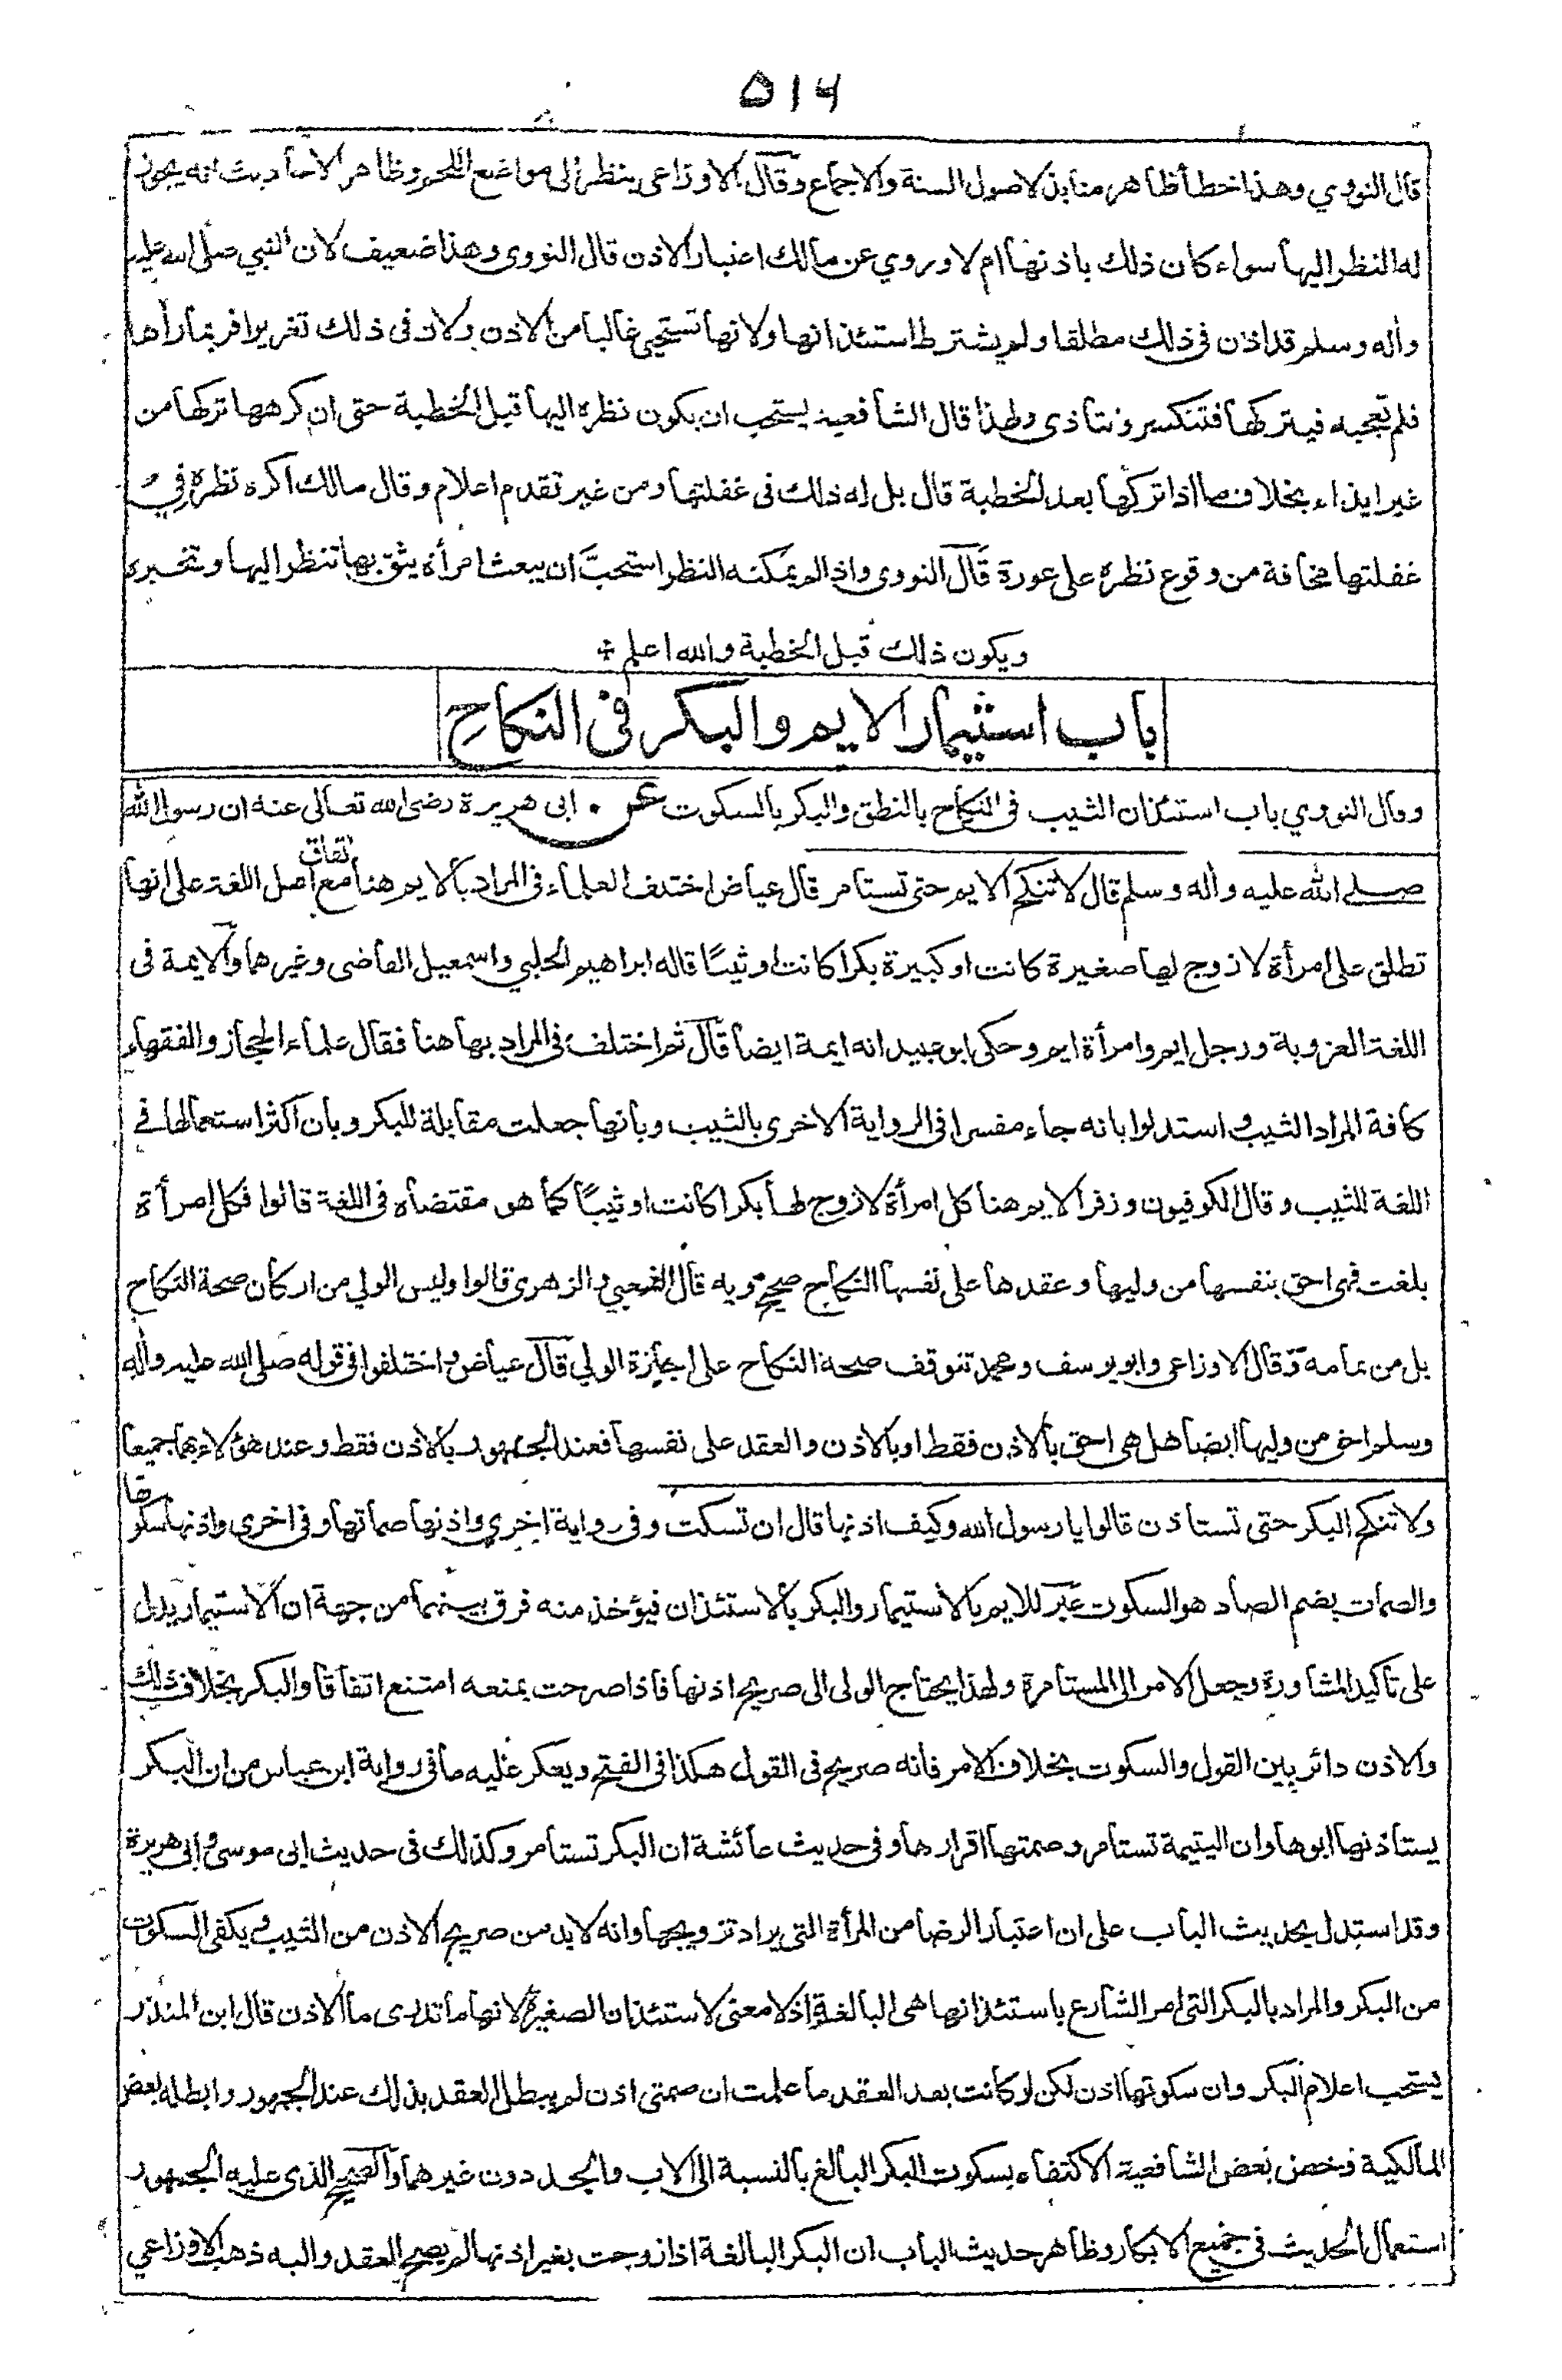 ۵۱۴
قال النووي وهذا خطأ ظاهر منابذ لاصول السنة والاجماع وقال الاوزاعى ينظر الى مواضع اللحم وظاهر الاحاديث انه يجوز
له النظر اليها سواء كان ذلك باذنها ام لا وروي عن مالك اعتبار الاذن قال النووى وهذا ضعيف لان النبي صلى الله عليه
واٰله وسلم قد اذن فى ذلك مطلقا ولم يشترط استئذانها ولانها تستحيى غالبا من الاذن ولان فى ذلك تغريرا فربما رأها
فلم تعجبه فيتركها فتنكسر وتتأذى ولهذا قال الشافعية يستحب ان يكون نظره اليها قبل الخطبة حتى ان كرهها تركها من
غير ايذاء بخلاف ما اذا تركها بعد الخطبة قال بل له ذلك فى غفلتها ومن غير تقدم اعلام وقال مالك اكره نظره في
غفلتها مخافة من وقوع نظره على عورة قال النووى واذا لم يمكنه النظر استحبَّ ان يبعث امرأة يثق بها تنظر اليها وتخبره
ويكون ذلك قبل الخطبة والله اعلم
باب استيمار الايم والبكر فى النكاح
وقال النووي باب استئذان الثيب فى النكاح بالنطق والبكر بالسكوت عن ابى هريرة رضى الله تعالى عنه ان رسول الله
صلے الله عليه واٰله وسلم قال لا تنكح الايم حتى تستأمر قال عياض اختلف العلماء فى المراد بالايم هنا مع اتفاق اهل اللغة على انها
تطلق على امرأة لا زوج لها صغيرة كانت او كبيرة بكرا كانت او ثيبًا قاله ابراهيم الحلبي واسمعيل القاضى وغيرهما والايمة فى
اللغة العزوبة ورجل ايم وامرأة ايم وحكى ابو عبيد انه ايمة ايضا قال ثم اختلف فى المراد بها هنا فقال علماء الحجاز والفقهاء
كافة المراد الثيب واستدلوا بانه جاء مفسرا فى الرواية الاخرى بالثيب وبانها جعلت مقابلة للبكر وبان اكثر استعمالها في
اللغة للثيب وقال الكوفيون وزفر الايم هنا كل امرأة لا زوج لها بكرا كانت او ثيبًا كما هو مقتضاه فى اللغة قالوا فكل امرأة
بلغت فهى احق بنفسها من وليها وعقدها على نفسها النكاح صحيح وبه قال الشعبي والزهرى قالوا وليس الولي من اركان صحة النكاح
بل من تمامه وقال الاوزاعى وابو يوسف ومحمد تتوقف صحة النكاح على اجازة الولي قال عياض واختلفوا فى قوله صلى الله عليه واٰله
وسلم احق من وليها ايضا هل هى احق بالاذن فقط او بالاذن والعقد على نفسها فعند الجمهور بالاذن فقط وعند هؤلاء بهما جميعا
ولا تنكح البكر حتى تستأذن قالوا يا رسول الله وكيف اذنها قال ان تسكت وفى رواية اخرى واذنها صماتها وفى اخرى واذنها سكوتها
والصمات بضم الصاد هو السكوت عبّر للايم بالاستيمار والبكر بالاستئذان فيؤخذ منه فرق بينهما من جهة ان الاستيمار يدل
على تأكيد المشاورة وجعل الامر الى المستأمرة ولهذا يحتاج الولى الى صريح اذنها فاذا صرحت بمنعه امتنع اتفاقا والبكر بخلاف ذلك
والاذن دائر بين القول والسكوت بخلاف الامر فانه صريح فى القول هكذا فى الفتح ويعكر عليه ما فى رواية ابن عباس من ان البكر
يستأذنها ابوها وان اليتيمة تستأمر وصمتها اقرارها وفى حديث عائشة ان البكر تستأمر وكذلك فى حديث ابى موسى وابى هريرة
وقد استدل بحديث الباب على ان اعتبار الرضا من المرأة التى يراد تزويجها وانه لا بد من صريح الاذن من الثيب ويكفى السكوت
من البكر والمراد بالبكر التى امر الشارع باستئذانها هى البالغة اذ لا معنى لاستئذان الصغيرة لانها ما تدرى ما الاذن قال ابن المنذر
يستحب اعلام البكر وان سكوتها اذن لكن لو كانت بعد العقد ما علمت ان صمتى اذن لم يبطل العقد بذلك عند الجمهور وابطله بعض
المالكية وخص بعض الشافعية الاكتفاء بسكوت البكر البالغ بالنسبة الى الاب والجد دون غيرهما والصحيح الذى عليه الجمهور
استعمال الحديث فى جميع الابكار وظاهر حديث الباب ان البكر البالغة اذا زوجت بغير اذنها لم يصح العقد واليه ذهب الاوزاعي